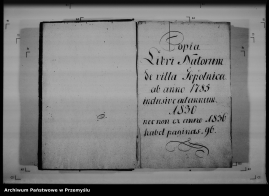 Copia
Libri Natorum
de villa Sopotnica
ab anno 1785
inclusive ad annum
1830
nec non ex anno 1836
habet paginas 96.
Archiwum Państwowe w Przemyślu